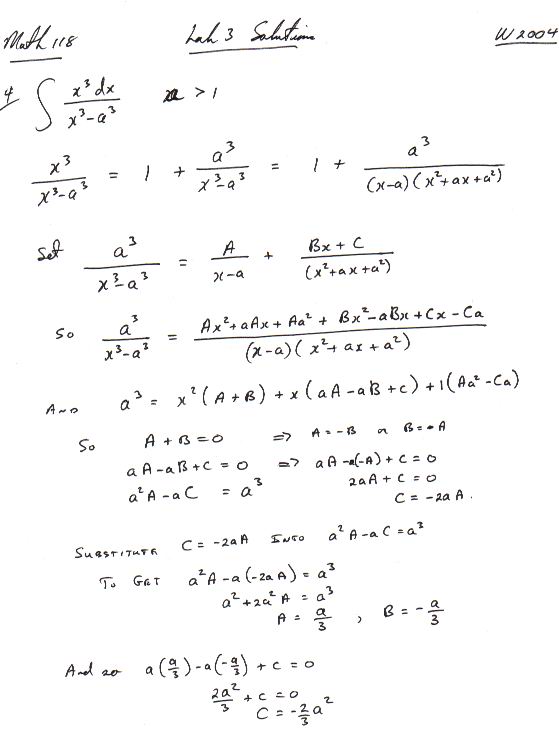 Math 118 Lab 3 Solutions W 2004
4 ∫ x³ dx / (x³-a³) > 1
x³/(x³-a³) = 1 + a³/(x³-a³) = 1 + a³/((x-a)(x²+ax+a²))
Set a³/(x³-a³) = A/(x-a) + (Bx + C)/(x²+ax+a²)
So a³/(x³-a³) = (Ax²+aAx+Aa² + Bx²-aBx+Cx-Ca)/((x-a)(x²+ax+a²))
AND a³ = x²(A+B) + x(aA-aB+c) + 1(Aa²-Ca)
So A+B=0 ⇒ A=-B or B=-A
aA-aB+c = 0 ⇒ aA-a(-A)+c = 0
a²A-aC = a³ 2aA+C = 0
C = -2aA.
SUBSTITUTE C = -2aA INTO a²A-aC=a³
TO GET a²A-a(-2aA) = a³
a²+2a²A = a³
A = a/3 , B = -a/3
And so a(a/3)-a(-a/3)+c = 0
2a²/3+c = 0
C = -2/3 a²